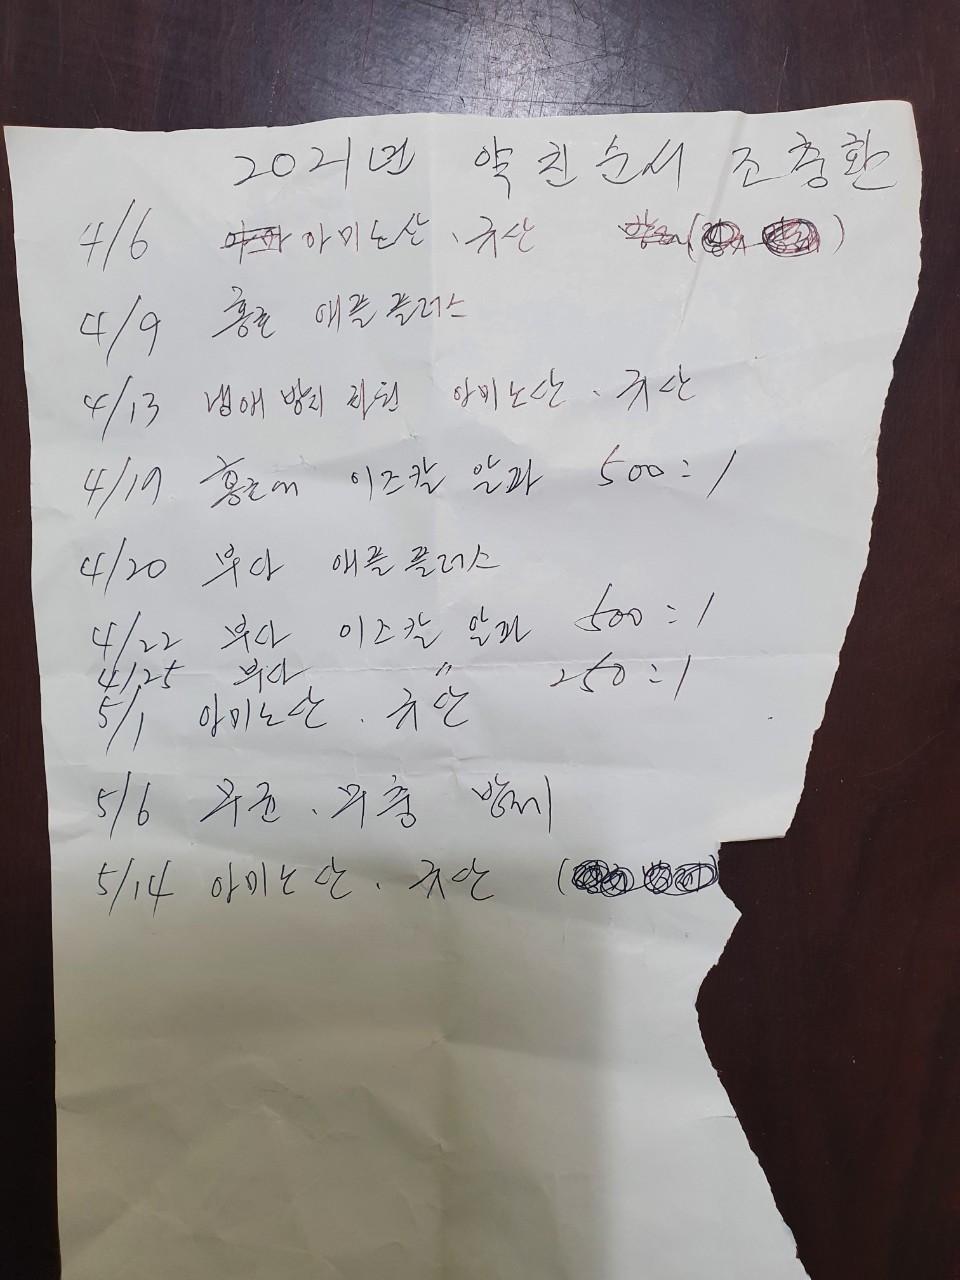 2021년 약 친 순서 조충환
4/6 아미노산 . 규산
4/9 홍로 애플플러스
4/13 냉해 방지 차원 아미노산 . 규산
4/19 홍로에 이즈칼 알파 500:1
4/20 부사 애플플러스
4/22 부사 이즈칼 알파 500:1
4/25 부사 〃 250:1
5/1 아미노산 . 규산
5/6 무균 . 무충 방제
5/14 아미노산 . 규산